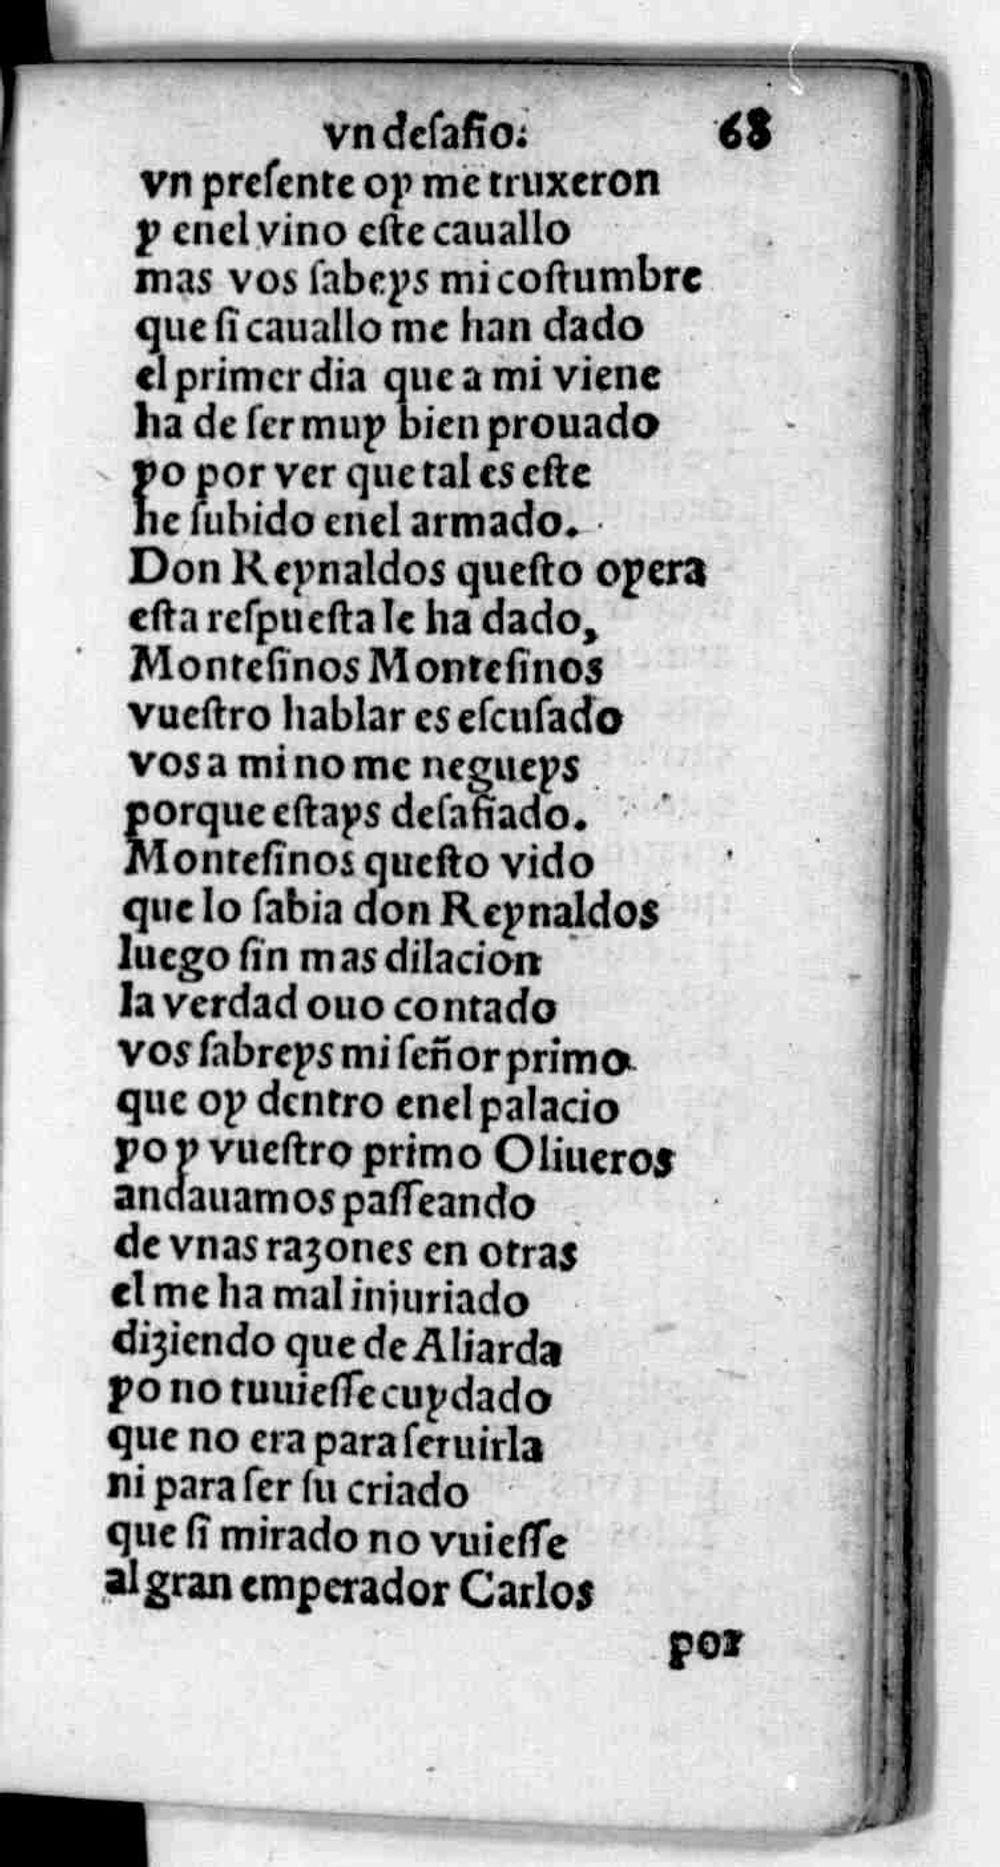 vn deſafio. 68
vn preſente oy me truxeron
y enel vino eſte cauallo
mas vos ſabeys mi coſtumbre
que ſi cauallo me han dado
el primer dia que a mi viene
ha de ſer muy bien prouado
yo por ver que tal es eſte
he ſubido enel armado.
Don Reynaldos queſto oyera
eſta reſpueſta le ha dado,
Monteſinos Monteſinos
vueſtro hablar es eſcuſado
vos a mi no me negueys
porque eſtays deſafiado.
Monteſinos queſto vido
que lo ſabia don Reynaldos
luego ſin mas dilacion
la verdad ouo contado
vos ſabreys mi ſeñor primo
que oy dentro enel palacio
yo y vueſtro primo Oliueros
andauamos paſſeando
de vnas razones en otras
el me ha mal injuriado
diziendo que de Aliarda
yo no tuuieſſe cuydado
que no era para ſeruirla
ni para ſer ſu criado
que ſi mirado no vuieſſe
al gran emperador Carlos
por